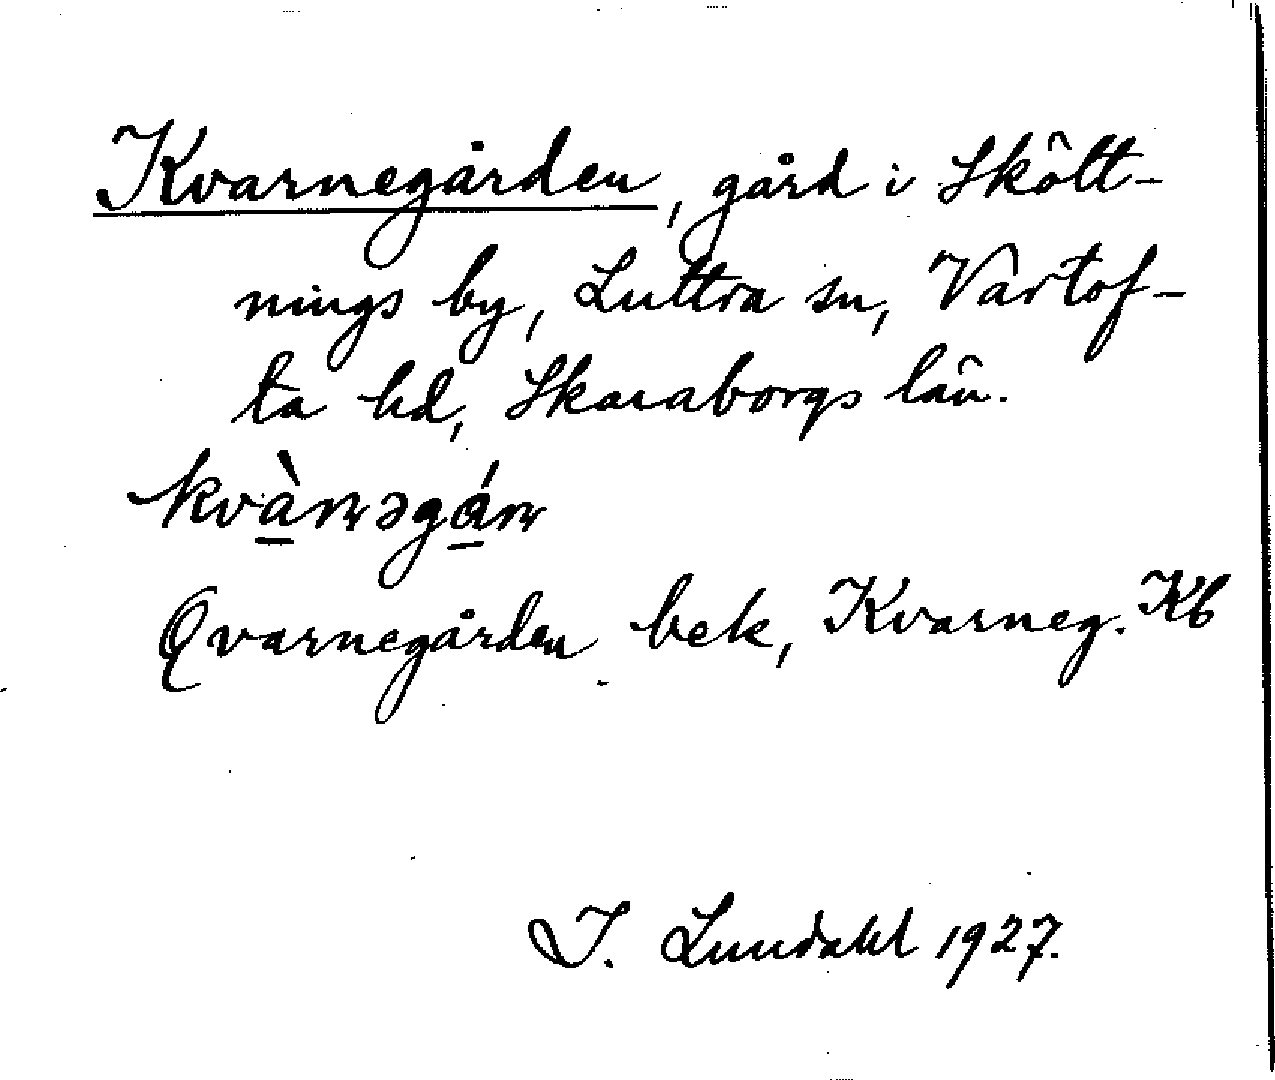 Kvarnegården, gård i Skött-
nings by, Luttra sn, Vartof-
ta hd, Skaraborgs län.
kvàɳəgáɳ
Qvarnegården bek, Kvarneg. Kb
I. Lundahl 1927.